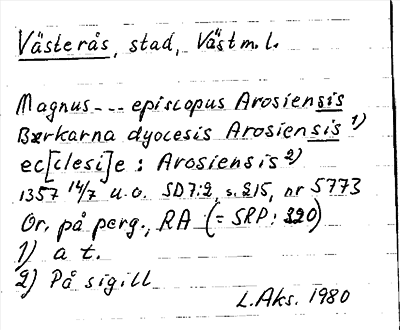 Västerås, stad, Västm. l.
Magnus --- episcopus Arosiensis
Bærkarna dyocesis Arosiensis 1)
ec[clesi]e : Arosiensis 2)
1357 14/7 u.o. SD 7:2, s. 215, nr 5773
Or. på perg., RA (= SRP: 320)
1) a t.
2) På sigill
L. Aks. 1980